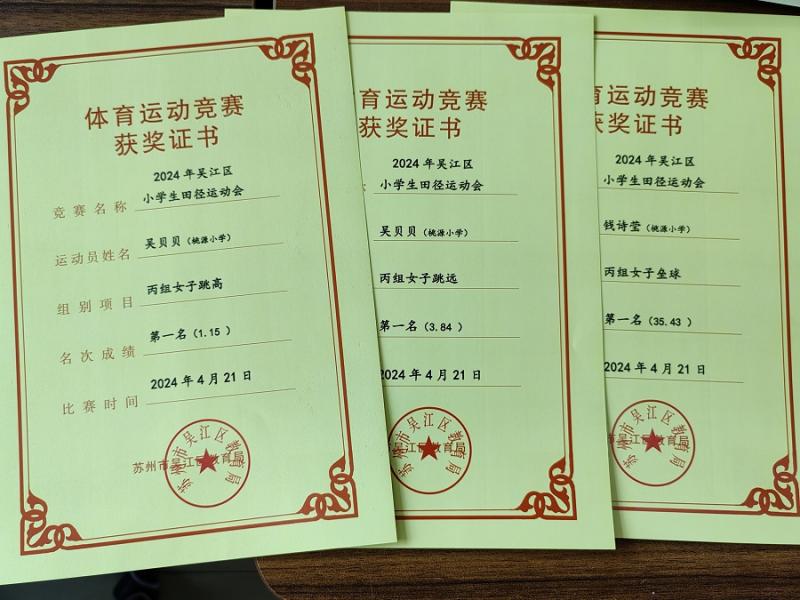 体育运动竞赛
获奖证书
2024年吴江区
竞赛名称 小学生田径运动会
运动员姓名 吴贝贝（桃源小学）
组别项目 丙组女子跳高
名次成绩 第一名（1.15 ）
比赛时间 2024年4月21日
苏州市吴江区教育局
苏州市吴江区教育局
育运动竞赛
获奖证书
2024年吴江区
小学生田径运动会
吴贝贝（桃源小学）
丙组女子跳远
第一名（3.84 ）
2024年4月21日
苏州市吴江区教育局
育运动竞赛
奖证书
2024年吴江区
小学生田径运动会
钱诗莹（桃源小学）
丙组女子垒球
第一名（35.43 ）
2024年4月21日
苏州市吴江区教育局